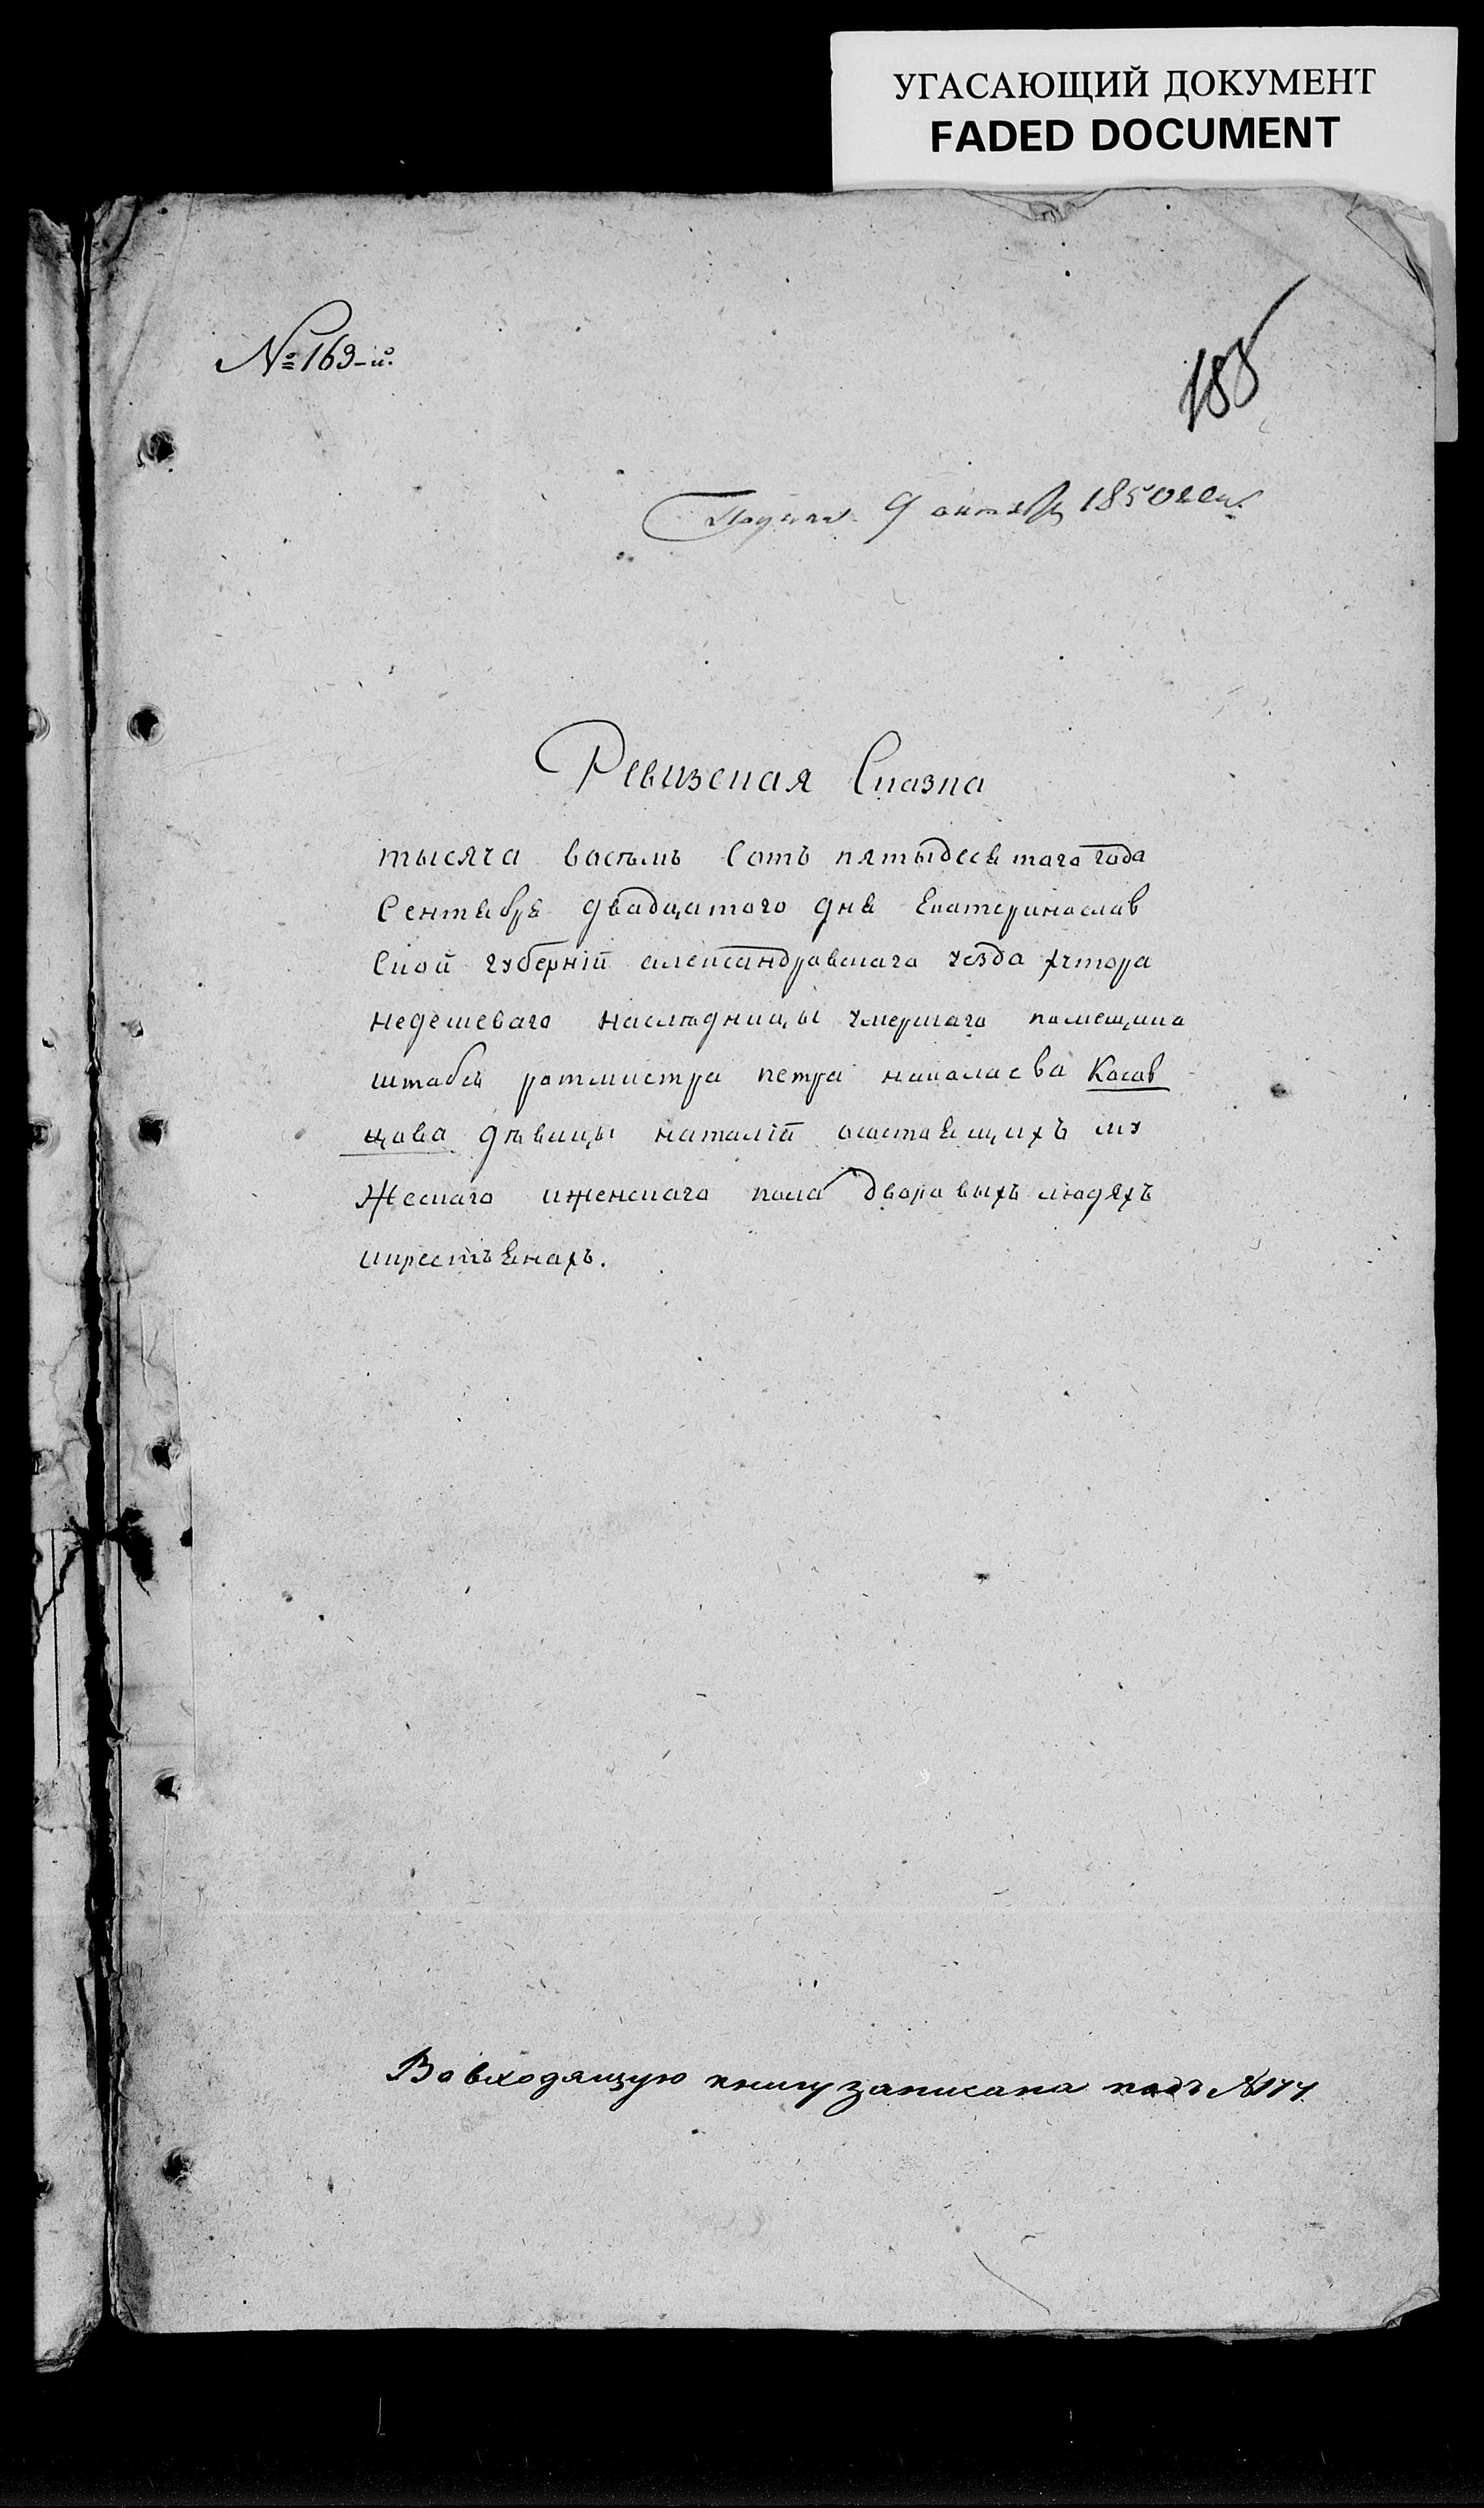 УГАСАЮЩИЙ ДОКУМЕНТ
FADED DOCUMENT
№ 163-й.
Подана 9 октября 1850 года.
Ревизская Сказка
тысяча восемь Сотъ пятьдесятаго года
Сентября двадцатого дня Екатеринослав
ской губерніи александровскаго уезда хутора
недешеваго наследницы умершаго помещика
штабсъ ротмистра петра николаева Косов
цова девицы наталіи осостоящихъ му
жескаго иженскаго пола дворовыхъ людяхъ
икрестьянахъ.
Во входящую книгу записана подъ №